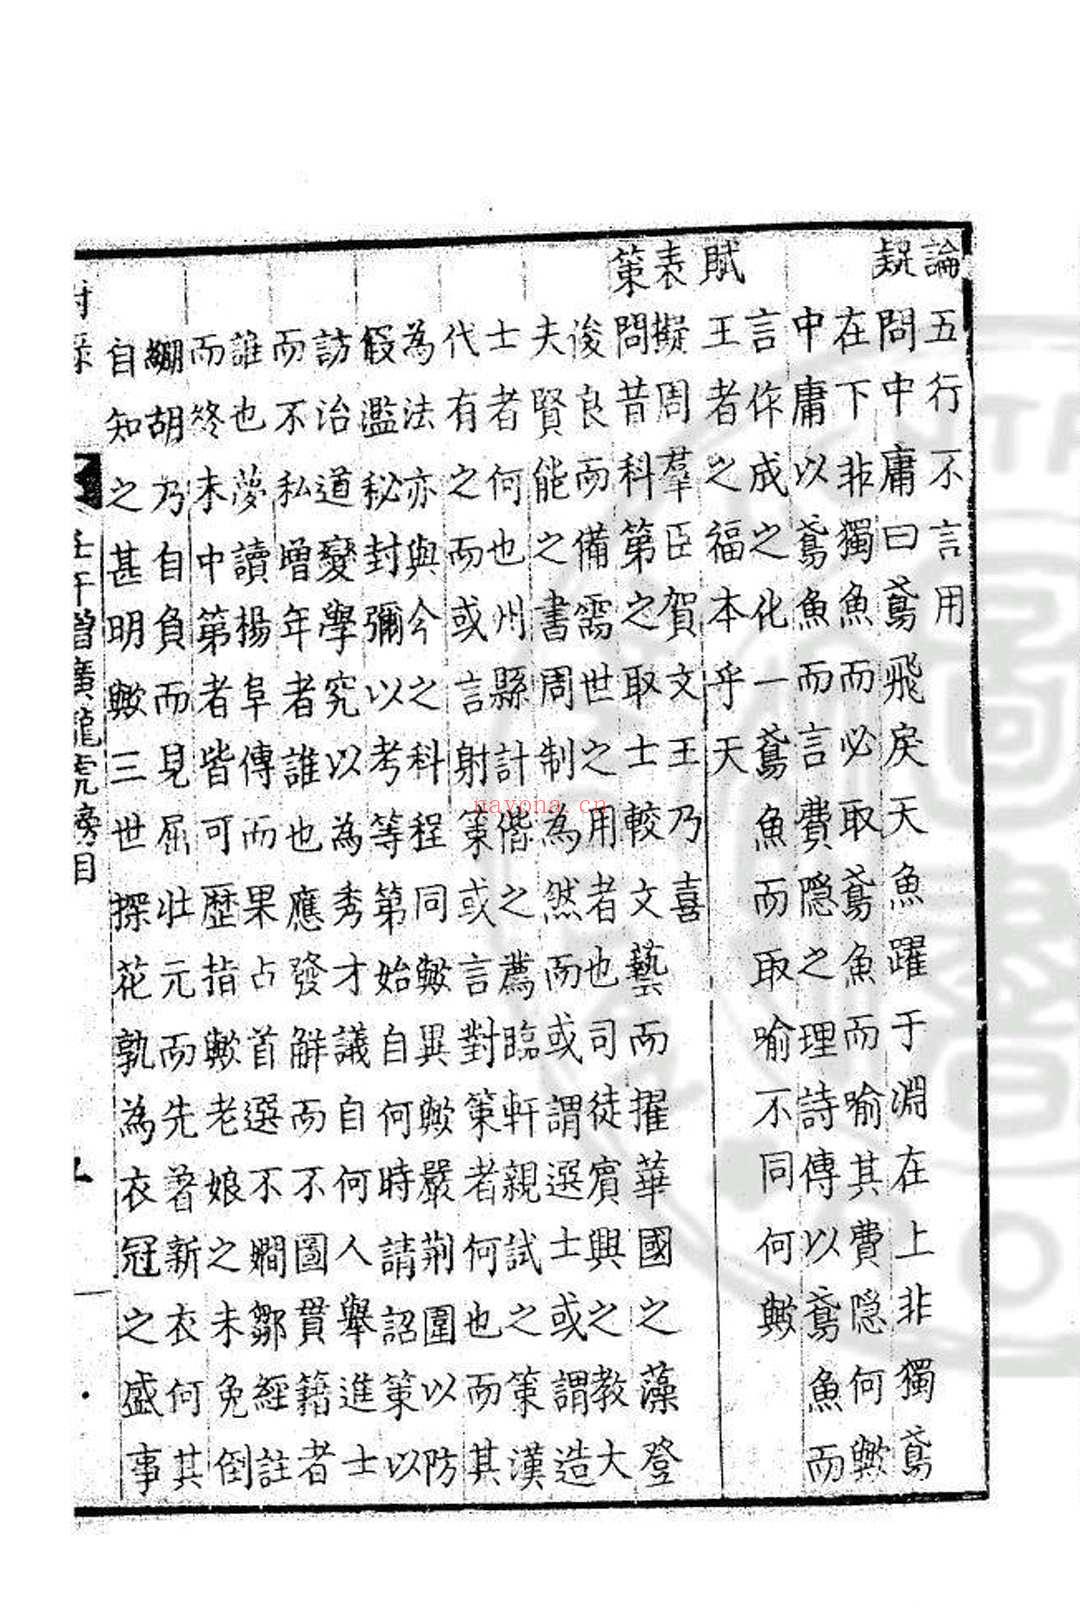 論 五行不言用
疑 問中庸曰鳶飛戾天魚躍于淵在上非獨鳶
在下非獨魚而必取鳶魚而喻其費隱何歟
中庸以鳶魚而言費隱之理詩傳以鳶魚而
言作成之化一鳶魚而取喻不同何歟
賦 王者之福本乎天
表 擬周羣臣賀文王乃喜
策 問昔科第之取士較文藝而擢華國之藻登
俊良而備需世之用者也司徒賓興之教大
夫賢能之書周制為然而或謂選士或謂造
士者何也州縣計偕之薦臨軒親試之策漢
代有之而或言射策或言對策者何也而其
為法亦與今之科程同歟異歟嚴荊圍以防
假濫秘封彌以考等第始自何時請詔策以
訪治道變學究以為秀才議自何人舉進士
而不私增年者誰也應發解而不圖貫籍者
誰也夢讀楊阜傳而果占首選不嫺鄒經註
而終未中第者皆可歷指歟老娘之未免倒
綳胡乃自負而見屈壯元而先著新衣何其
自知之甚明歟三世探花孰為衣冠之盛事
壬午增廣龍虎榜目
nayona.cn